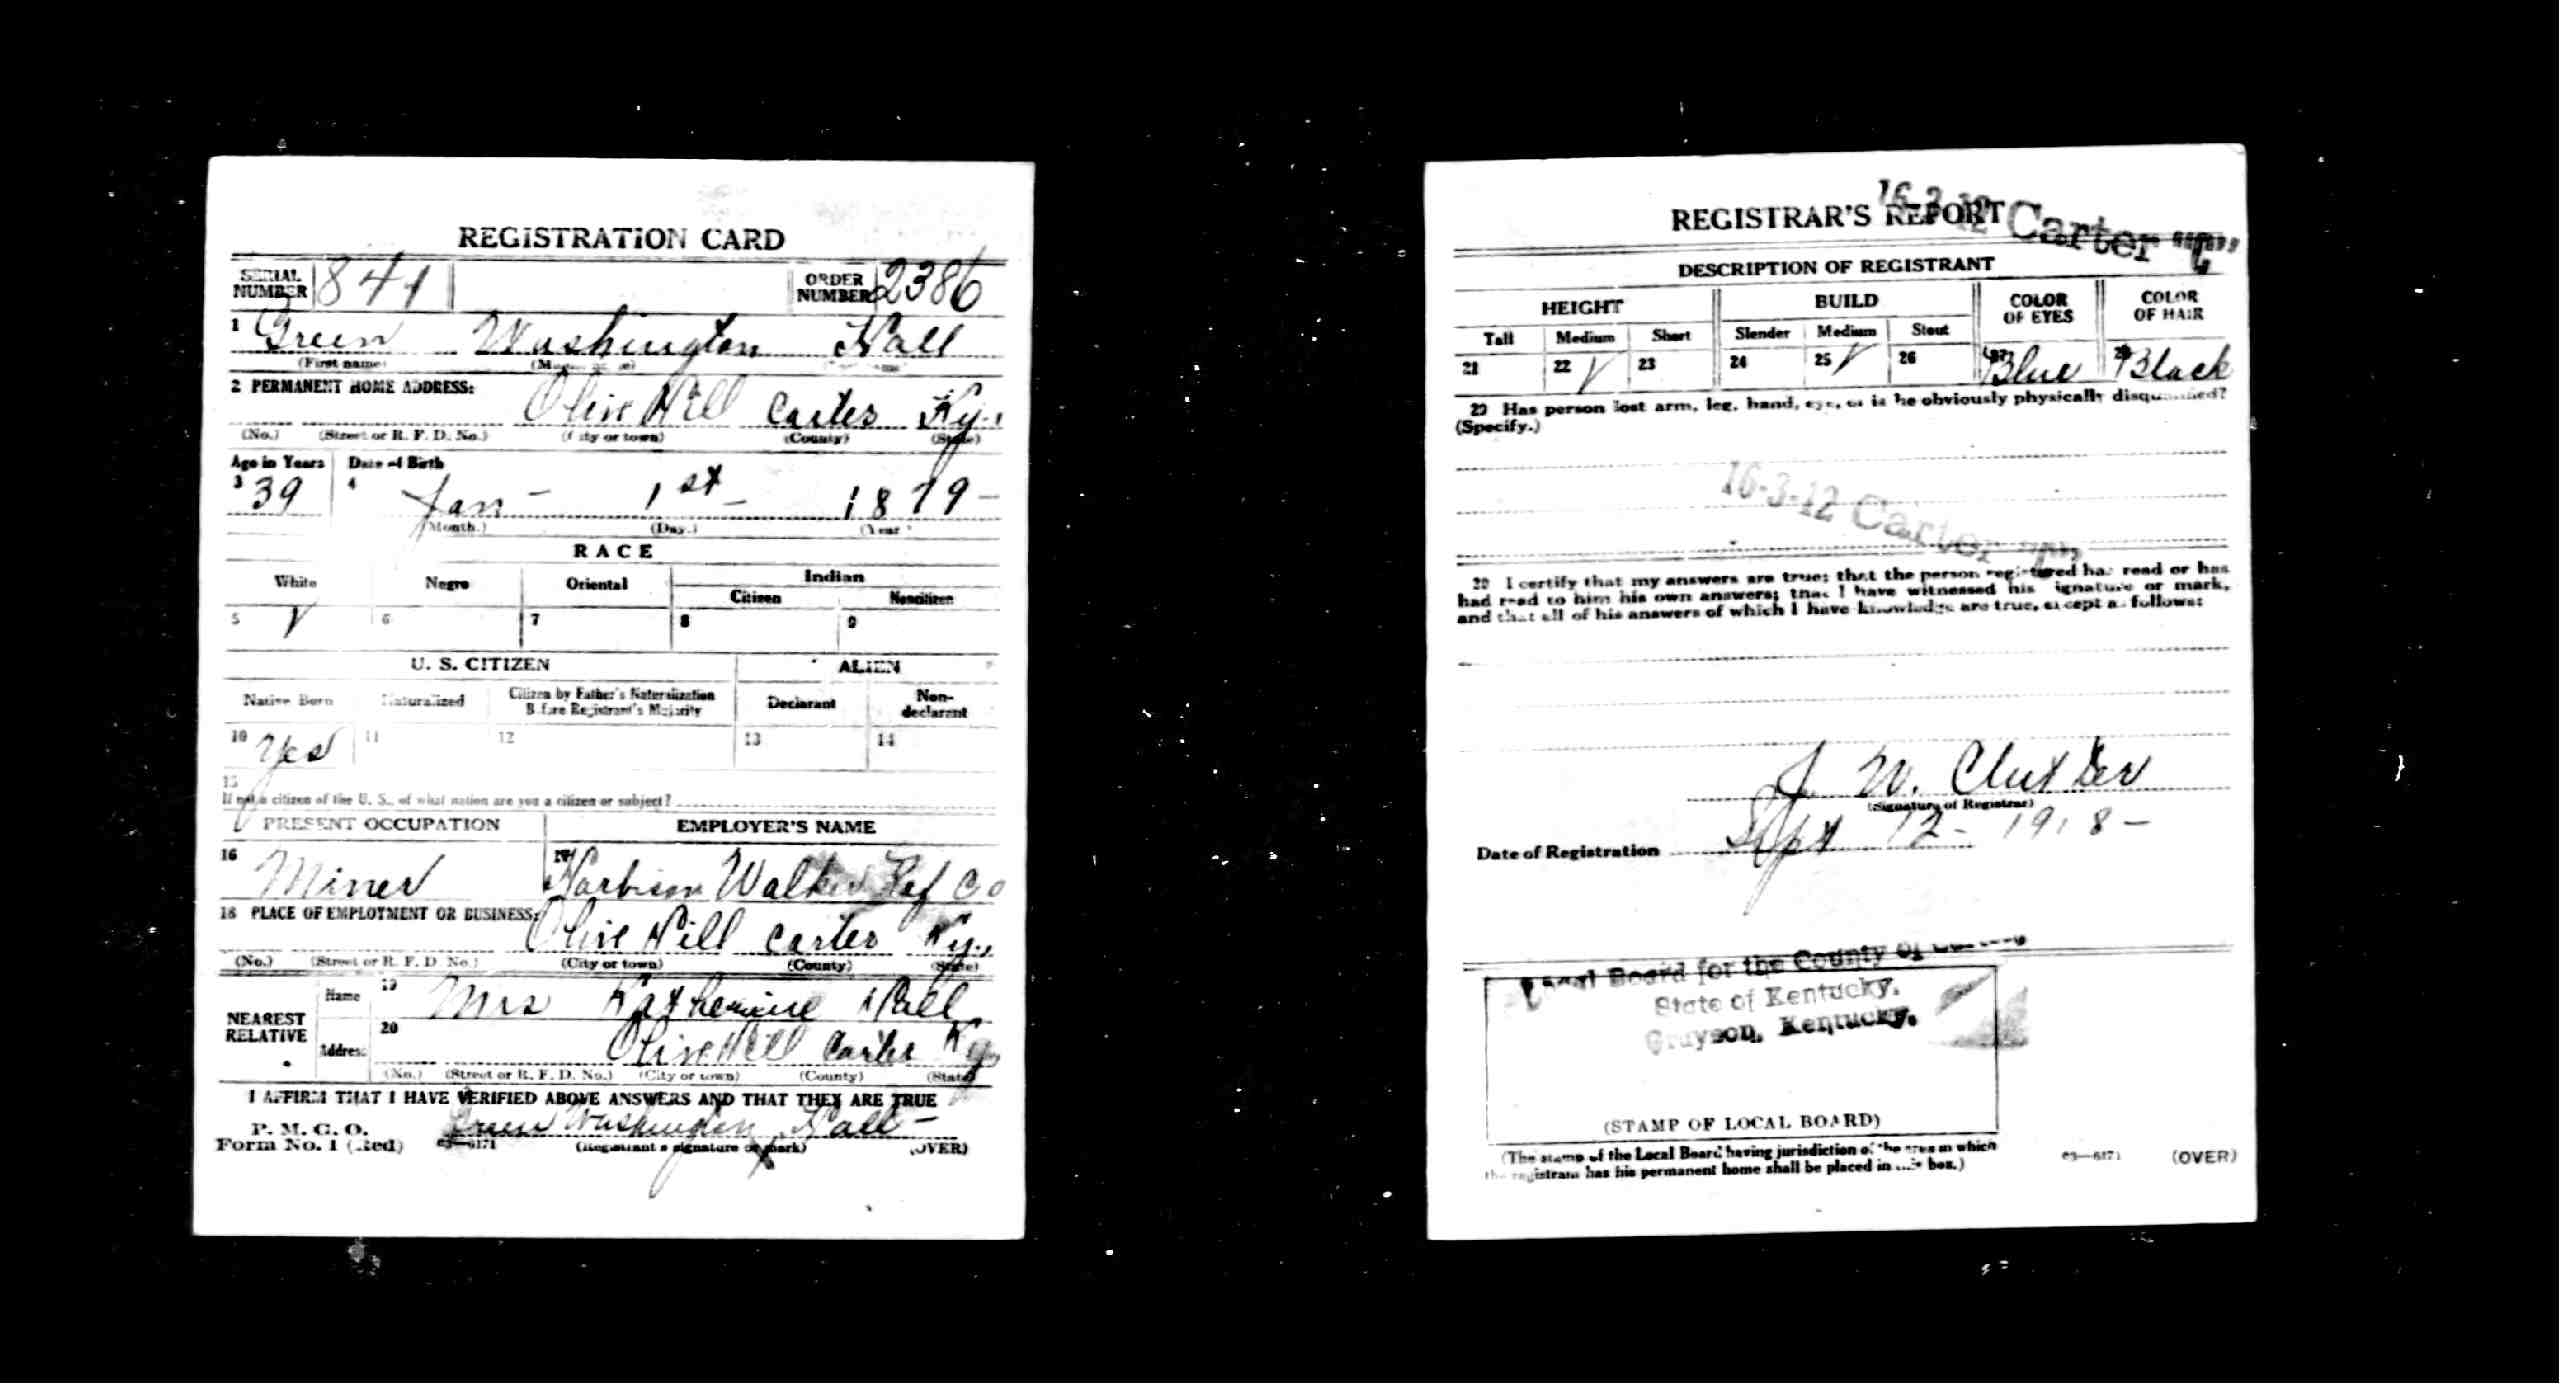 REGISTRATION CARD
SERIAL NUMBER 841 ORDER NUMBER 2386
1 Green Washington Hall
(First name)
2 PERMANENT HOME ADDRESS:
Olive Hill Carter Ky.
(No.) (Street or R. F. D. No.) (City or town) (County) (State)
Age in Years Date of Birth
3 39 4 Jan - 1st - 1879 -
(Month.) (Day.) (Year)
RACE
White Negro Oriental Indian
Citizen Noncitizen
5 √ 6 7 8 9
U. S. CITIZEN ALIEN
Native Born Naturalized Citizen by Father's Naturalization Before Registrant's Majority Declarant Non-declarant
10 Yes 11 12 13 14
15
If not a citizen of the U. S., of what nation are you a citizen or subject?
PRESENT OCCUPATION EMPLOYER'S NAME
16 Miner 17 Harbison Walker Ref Co
18 PLACE OF EMPLOYMENT OR BUSINESS:
Olive Hill Carter Ky.,
(No.) (Street or R. F. D. No.) (City or town) (County) (State)
NEAREST RELATIVE
Name 19 Mrs Katherine Hall
Address 20 Olive Hill Carter Ky
(No.) (Street or R. F. D. No.) (City or town) (County) (State)
I AFFIRM THAT I HAVE VERIFIED ABOVE ANSWERS AND THAT THEY ARE TRUE
P. M. G. O.
Form No. 1 (Red) 03—6171 Green Washington Hall -
(Registrant's signature or mark) (OVER)
REGISTRAR'S REPORT
16-3-12 Carter "C"
DESCRIPTION OF REGISTRANT
HEIGHT BUILD COLOR OF EYES COLOR OF HAIR
Tall Medium Short Slender Medium Stout
21 22 √ 23 24 25 √ 26 27 Blue 28 Black
29 Has person lost arm, leg, hand, eye, or is he obviously physically disqualified?
(Specify.)
16-3-12 Carter
30 I certify that my answers are true; that the person registered has read or has
had read to him his own answers; that I have witnessed his signature or mark,
and that all of his answers of which I have knowledge are true, except as follows:
J. W. Cluxter
(Signature of Registrar)
Date of Registration Sept 12 - 1918 -
Local Board for the County of
State of Kentucky,
Grayson, Kentucky.
(STAMP OF LOCAL BOARD)
(The stamp of the Local Board having jurisdiction of the area in which
the registrant has his permanent home shall be placed in this box.)
03—6171 (OVER)